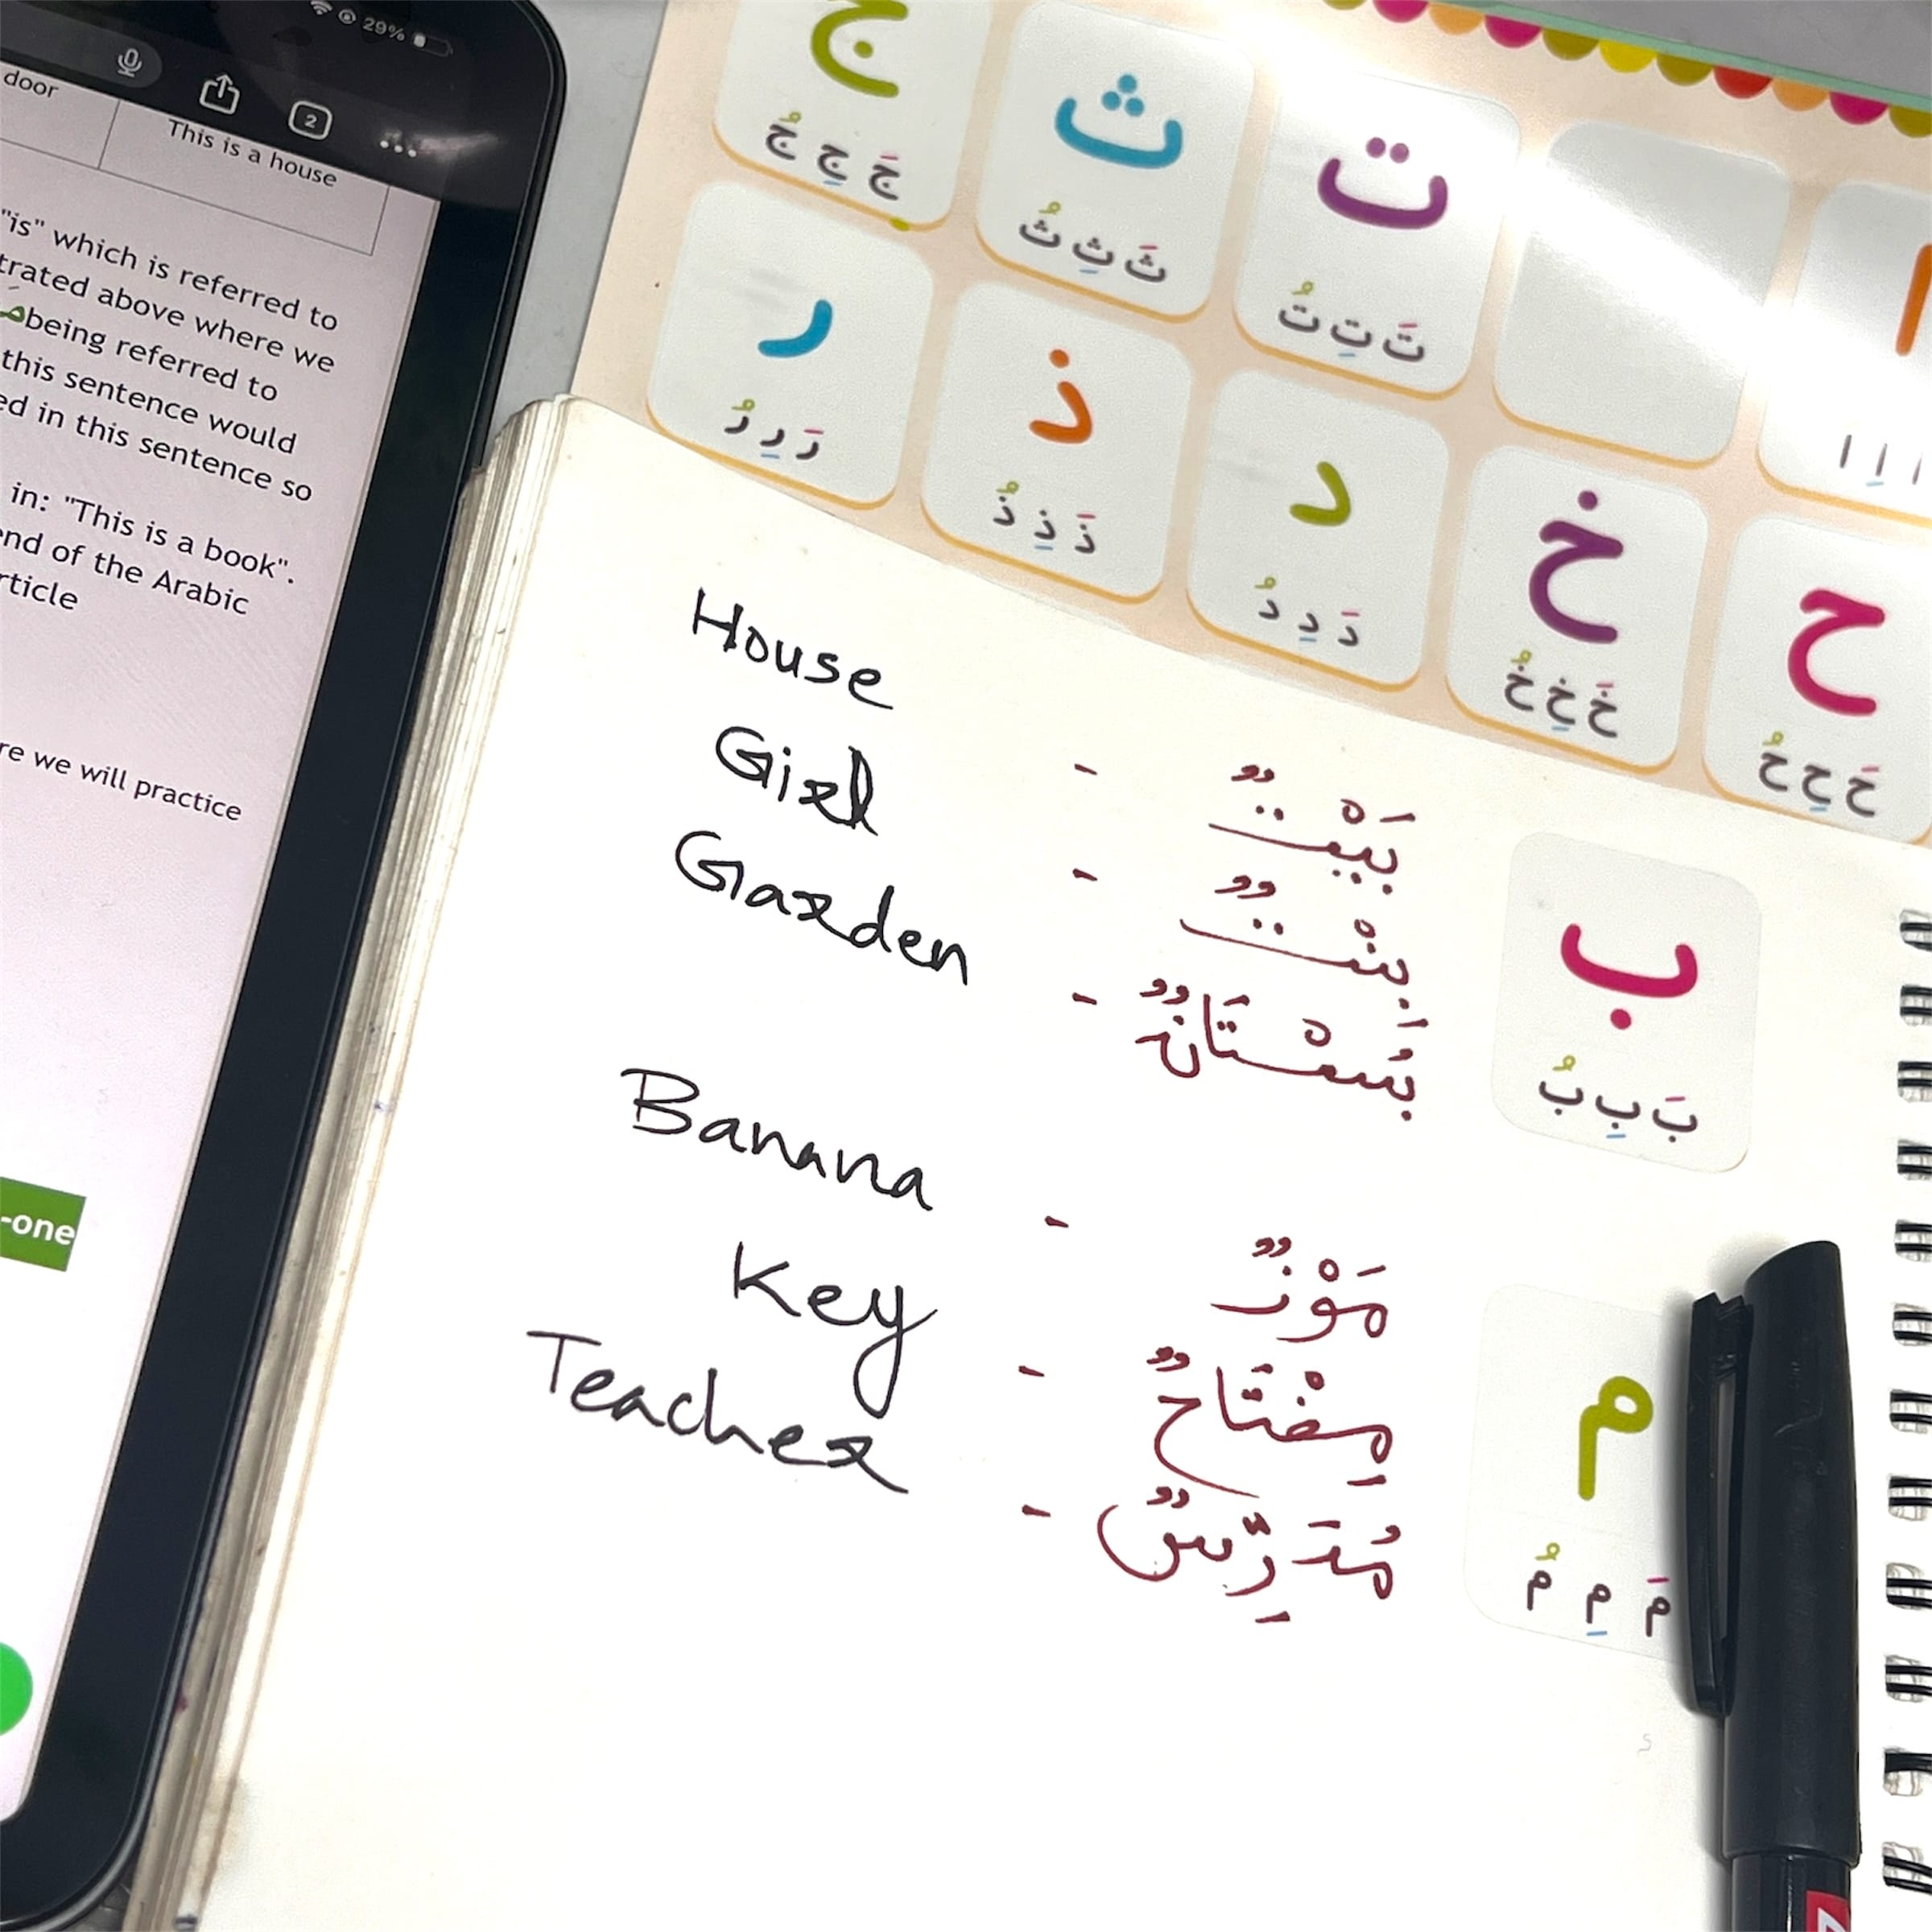 29%
2
door
This is a house
"is" which is referred to
trated above where we
being referred to
this sentence would
ed in this sentence so
in: "This is a book".
end of the Arabic
rticle
re we will practice
-one
ج
جَ جِ جُ
ث
ثَ ثِ ثُ
ت
تَ تِ تُ
ا
ر
رَ رِ رُ
ذ
ذَ ذِ ذُ
د
دَ دِ دُ
خ
خَ خِ خُ
ح
حَ حِ حُ
House - بَيْتٌ
Girl - بِنْتٌ
Garden - بُسْتَانٌ
ب
بَ بِ بُ
Banana - مَوْزٌ
Key - مِفْتَاحٌ
Teacher - مُدَرِّسٌ
م
مَ مِ مُ